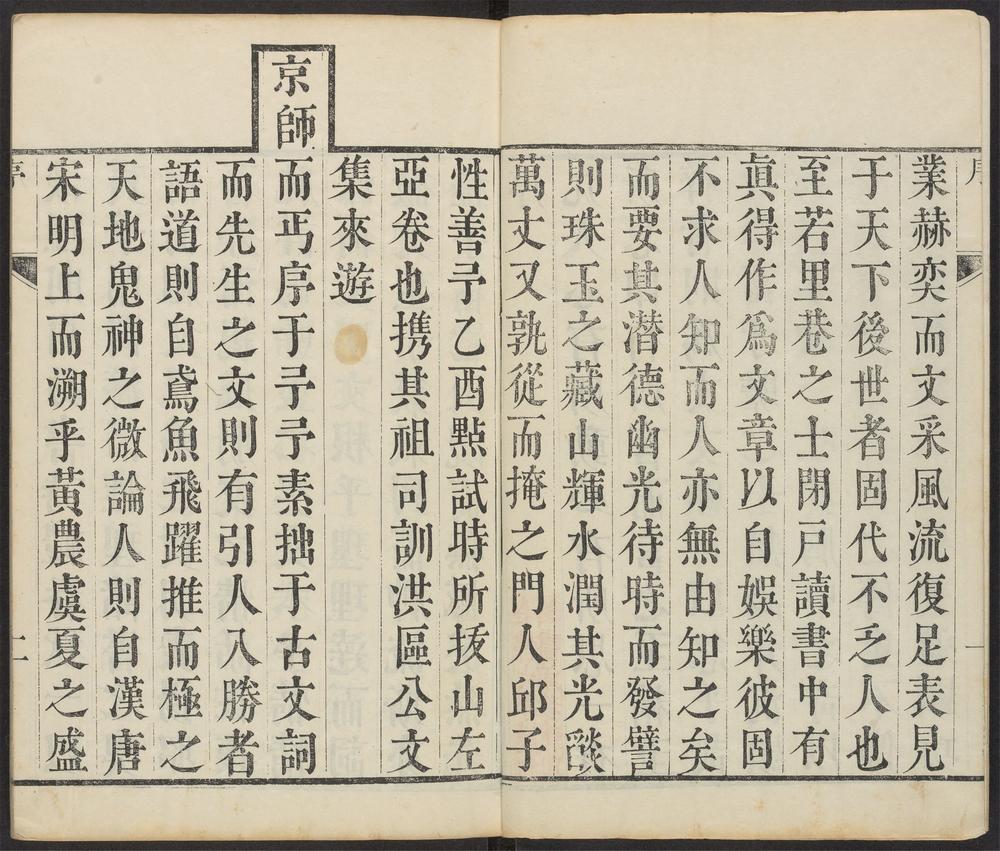 業赫奕而文采風流復足表見
于天下後世者固代不乏人也
至若里巷之士閉戸讀書中有
眞得作爲文章以自娛樂彼固
不求人知而人亦無由知之矣
而要其潛德幽光待時而發譬
則珠玉之藏山輝水潤其光燄
萬丈又孰從而掩之門人邱子
性善予乙酉㸃試時所拔山左
亞卷也携其祖司訓洪區公文
集來遊
京師
而丐序于予予素拙于古文詞
而先生之文則有引人入勝者
語道則自鳶魚飛躍推而極之
天地鬼神之微論人則自漢唐
宋明上而溯乎黃農虞夏之盛
序
二